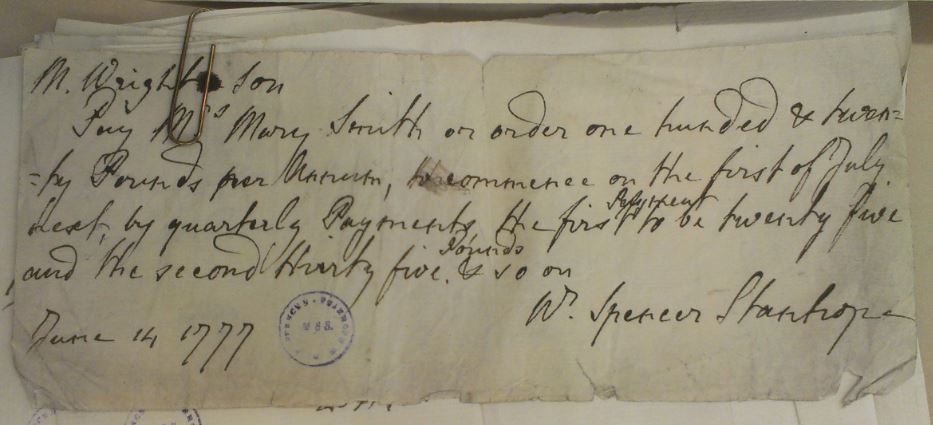 M. Wright & Son
Pay Mrs Mary Smith or order one hundred & twen=
=ty Pounds per Annum, to commence on the first of July
next, by quarterly Payments, the first Payment to be twenty five
and the second thirty five Pounds & so on
Wr. Spencer Stanhope
June 14 1777
SPENCER · STANHOPE
MSS.